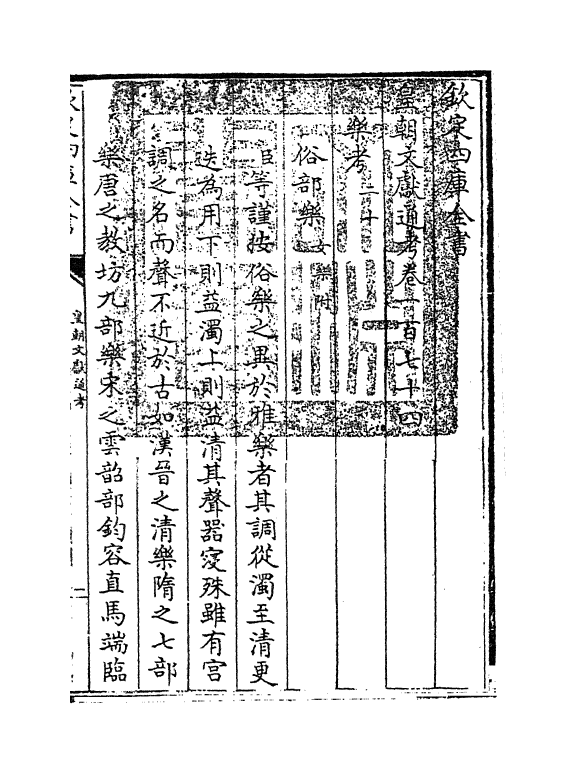 欽定四庫全書
皇朝文獻通考卷一百七十四
樂考二十
俗部樂女樂附
臣等謹按俗樂之異於雅樂者其調從濁至清更
迭為用下則益濁上則益清其聲器寖殊雖有宮
調之名而聲不近於古如漢晉之清樂隋之七部
樂唐之教坊九部樂宋之雲韶部鈞容直馬端臨
皇朝文獻通考